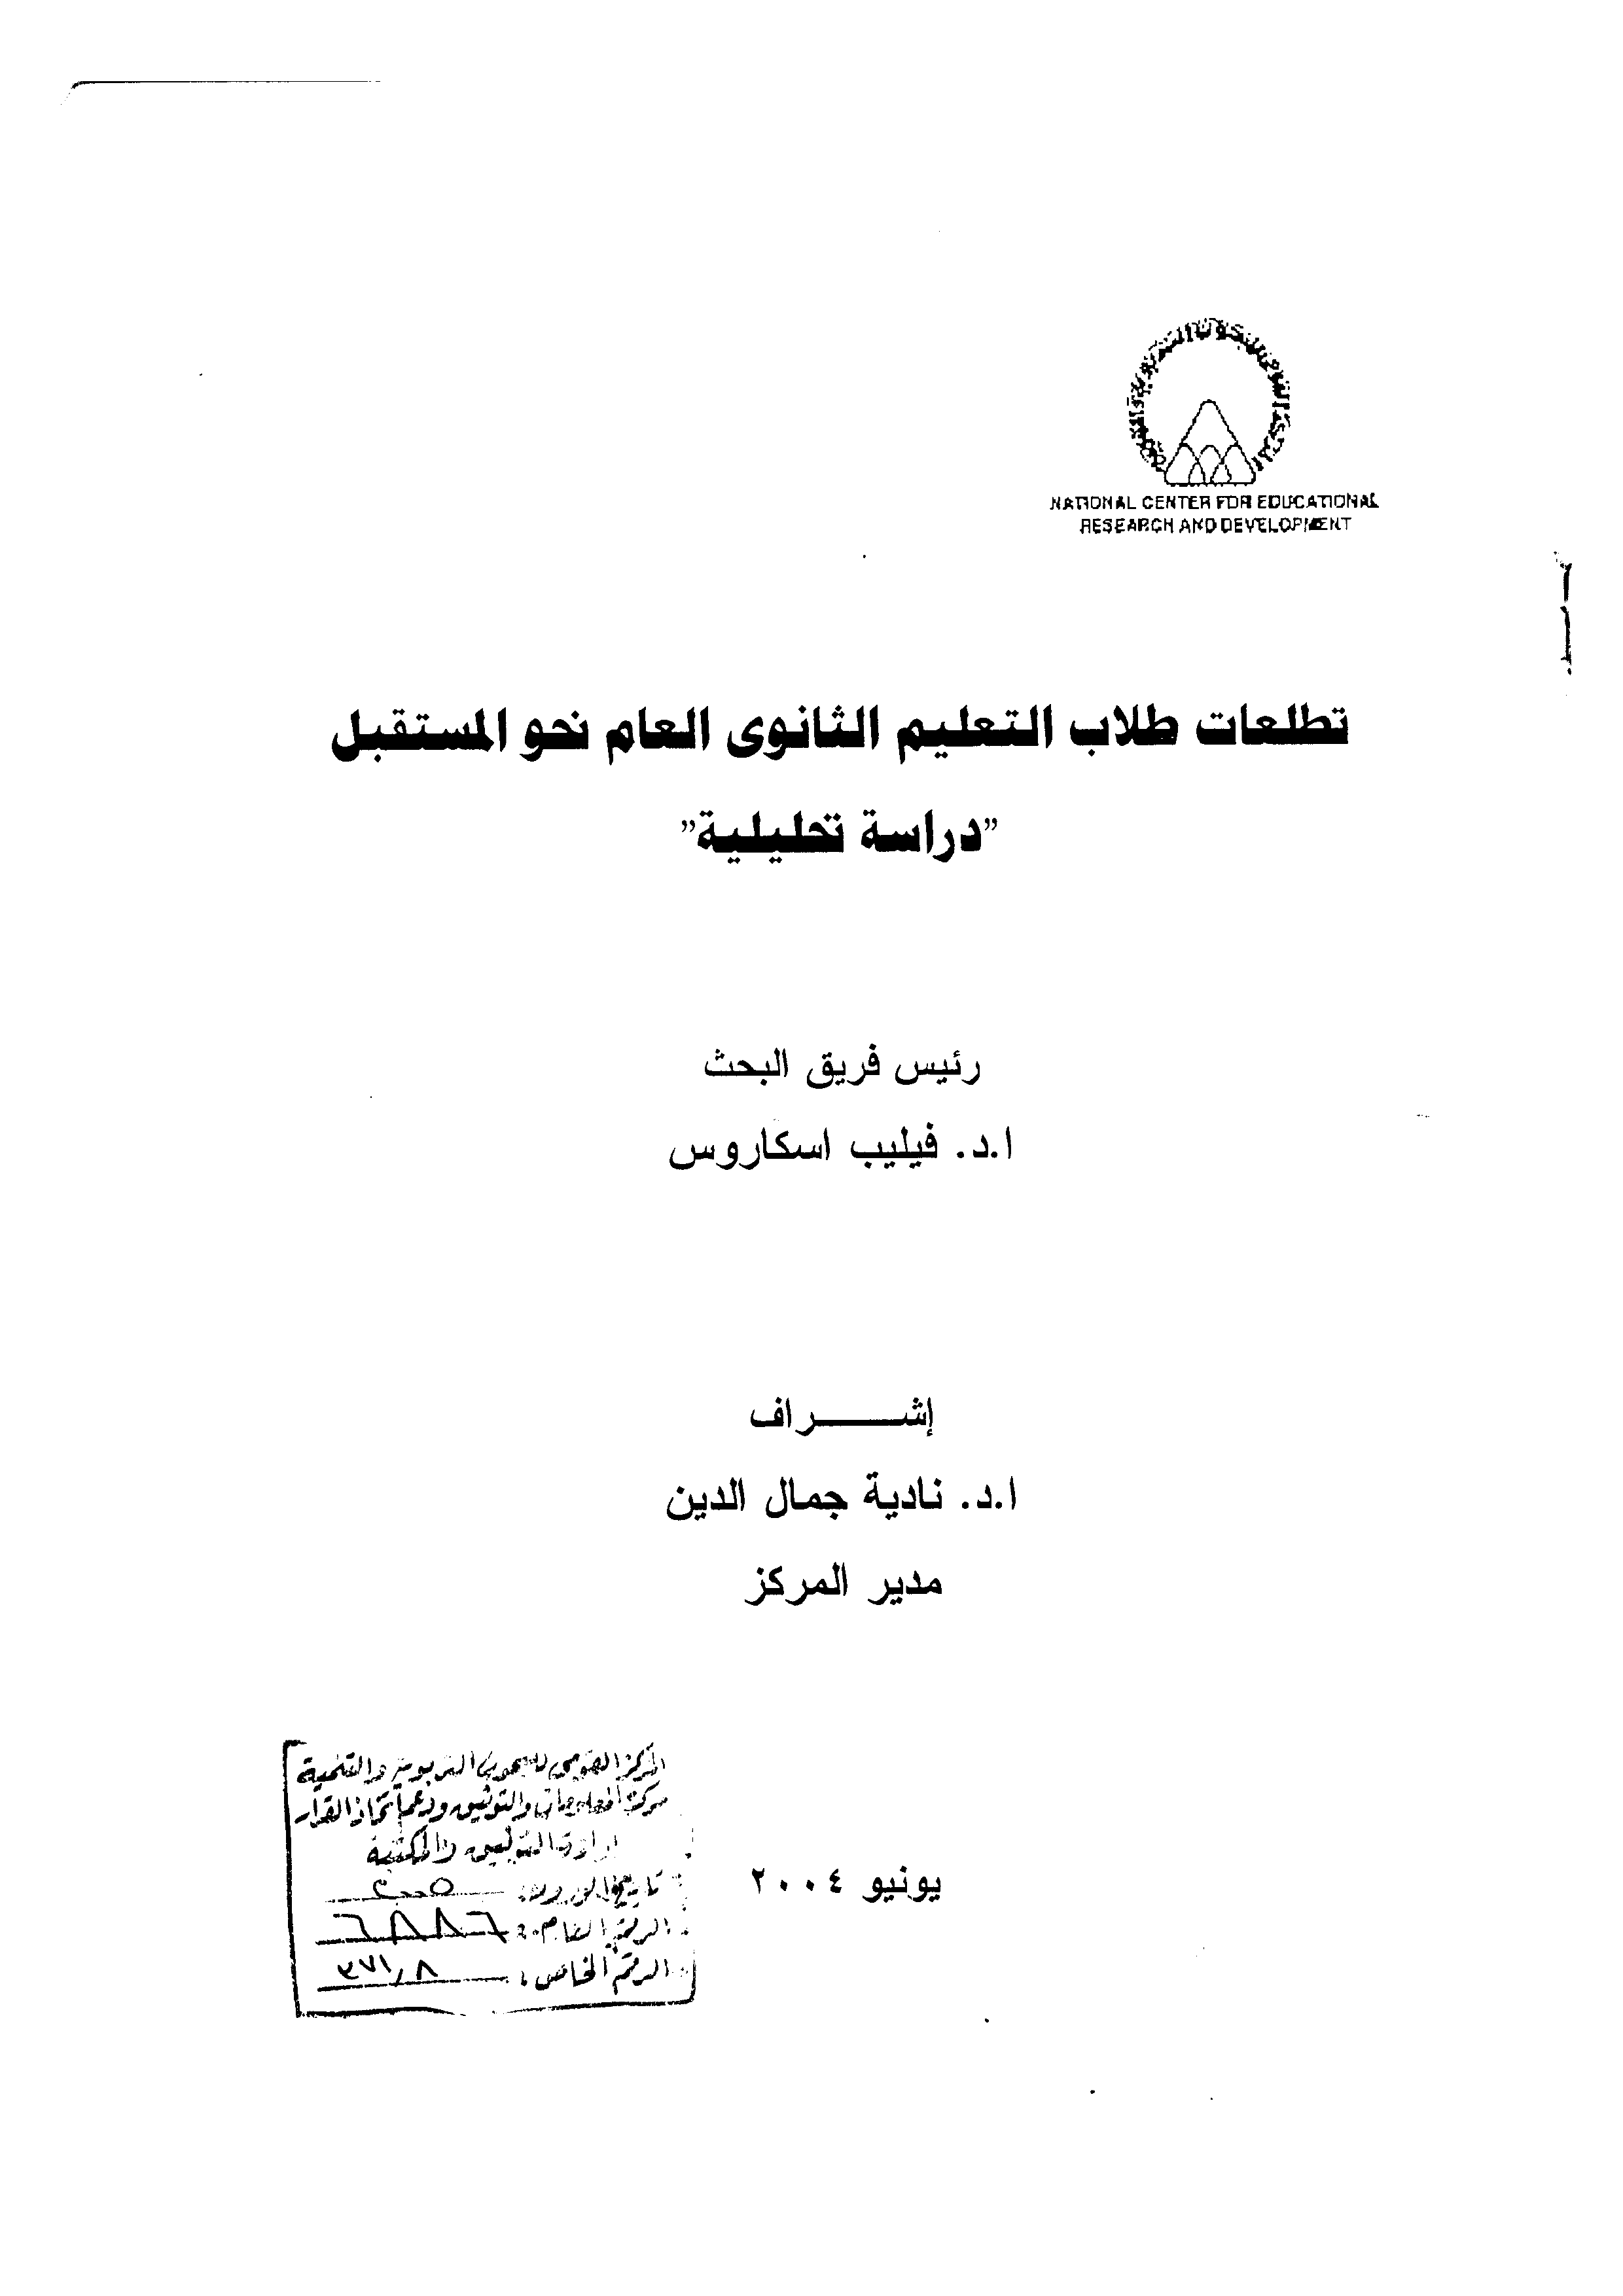 المركز القومى للبحوث التربوية والتنمية
NATIONAL CENTER FOR EDUCATIONAL
RESEARCH AND DEVELOPMENT
تطلعات طلاب التعليم الثانوى العام نحو المستقبل
”دراسة تحليلية”
رئيس فريق البحث
ا.د. فيليب اسكاروس
إشـــــــراف
ا.د. نادية جمال الدين
مدير المركز
يونيو ٢٠٠٤
المركز القومى للبحوث التربوية والتنمية
مركز المعلومات والتوثيق ودعم اتخاذ القرار
إدارة التوثيق والمكتبة
تاريخ الورود: ٢٠٠٥
الرقم العام:
الرقم الخاص: ٣٧١,٨